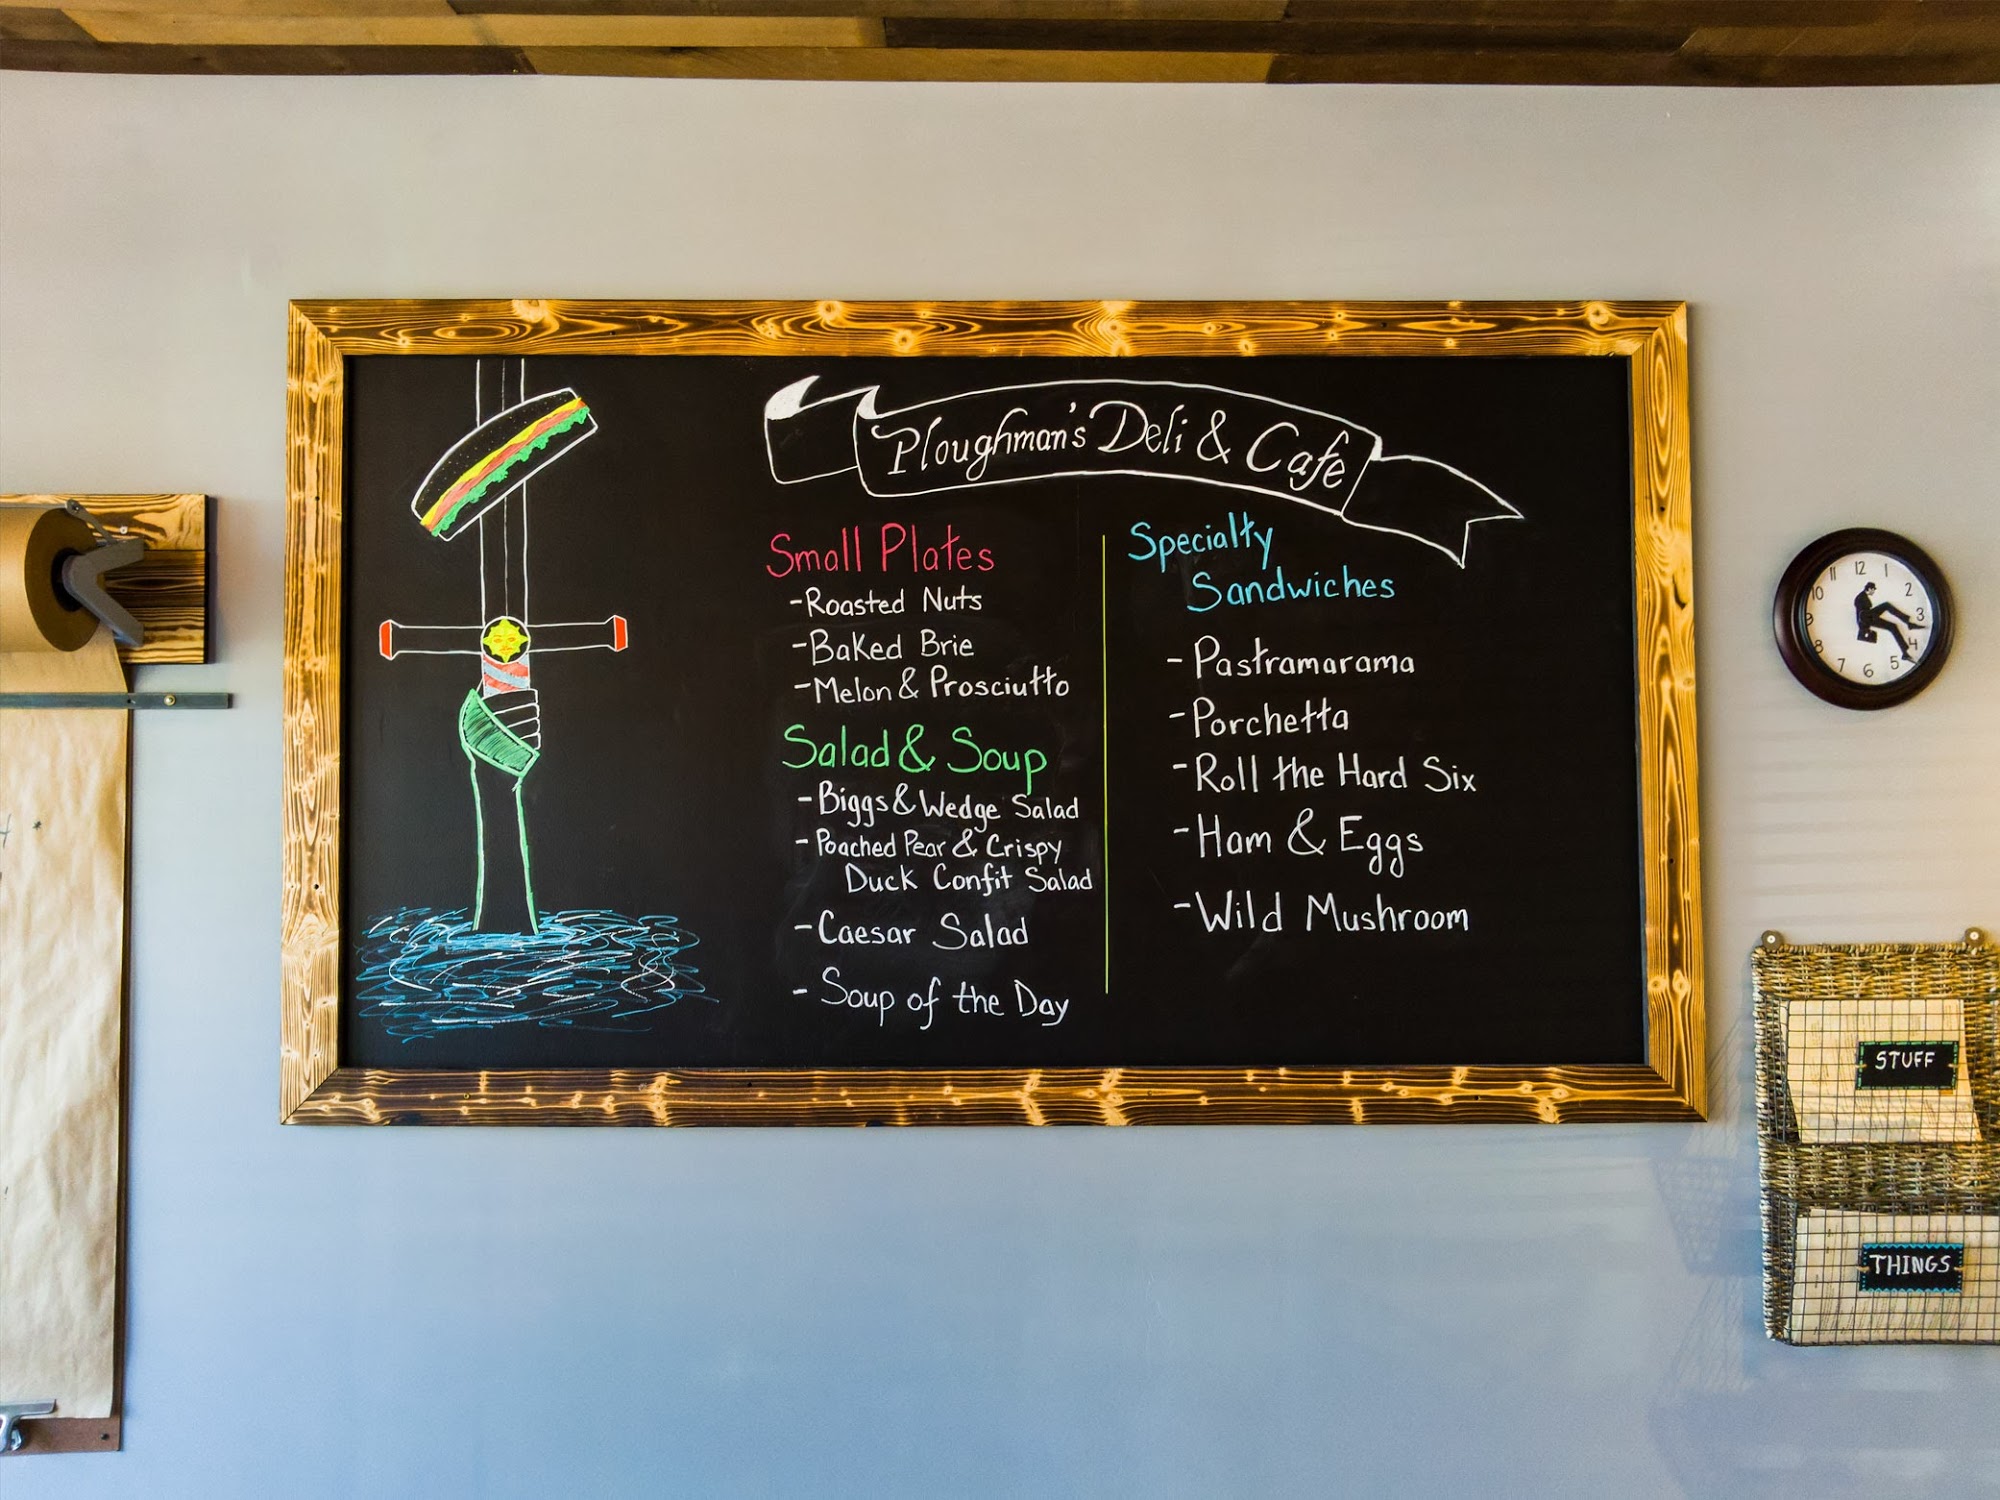 Ploughman's Deli & Cafe
Small Plates
-Roasted Nuts
-Baked Brie
-Melon & Prosciutto
Salad & Soup
-Biggs & Wedge Salad
-Poached Pear & Crispy
Duck Confit Salad
-Caesar Salad
-Soup of the Day
Specialty
Sandwiches
-Pastramarama
-Porchetta
-Roll the Hard Six
-Ham & Eggs
-Wild Mushroom
12
1
2
3
5
6
7
8
9
10
11
STUFF
THINGS